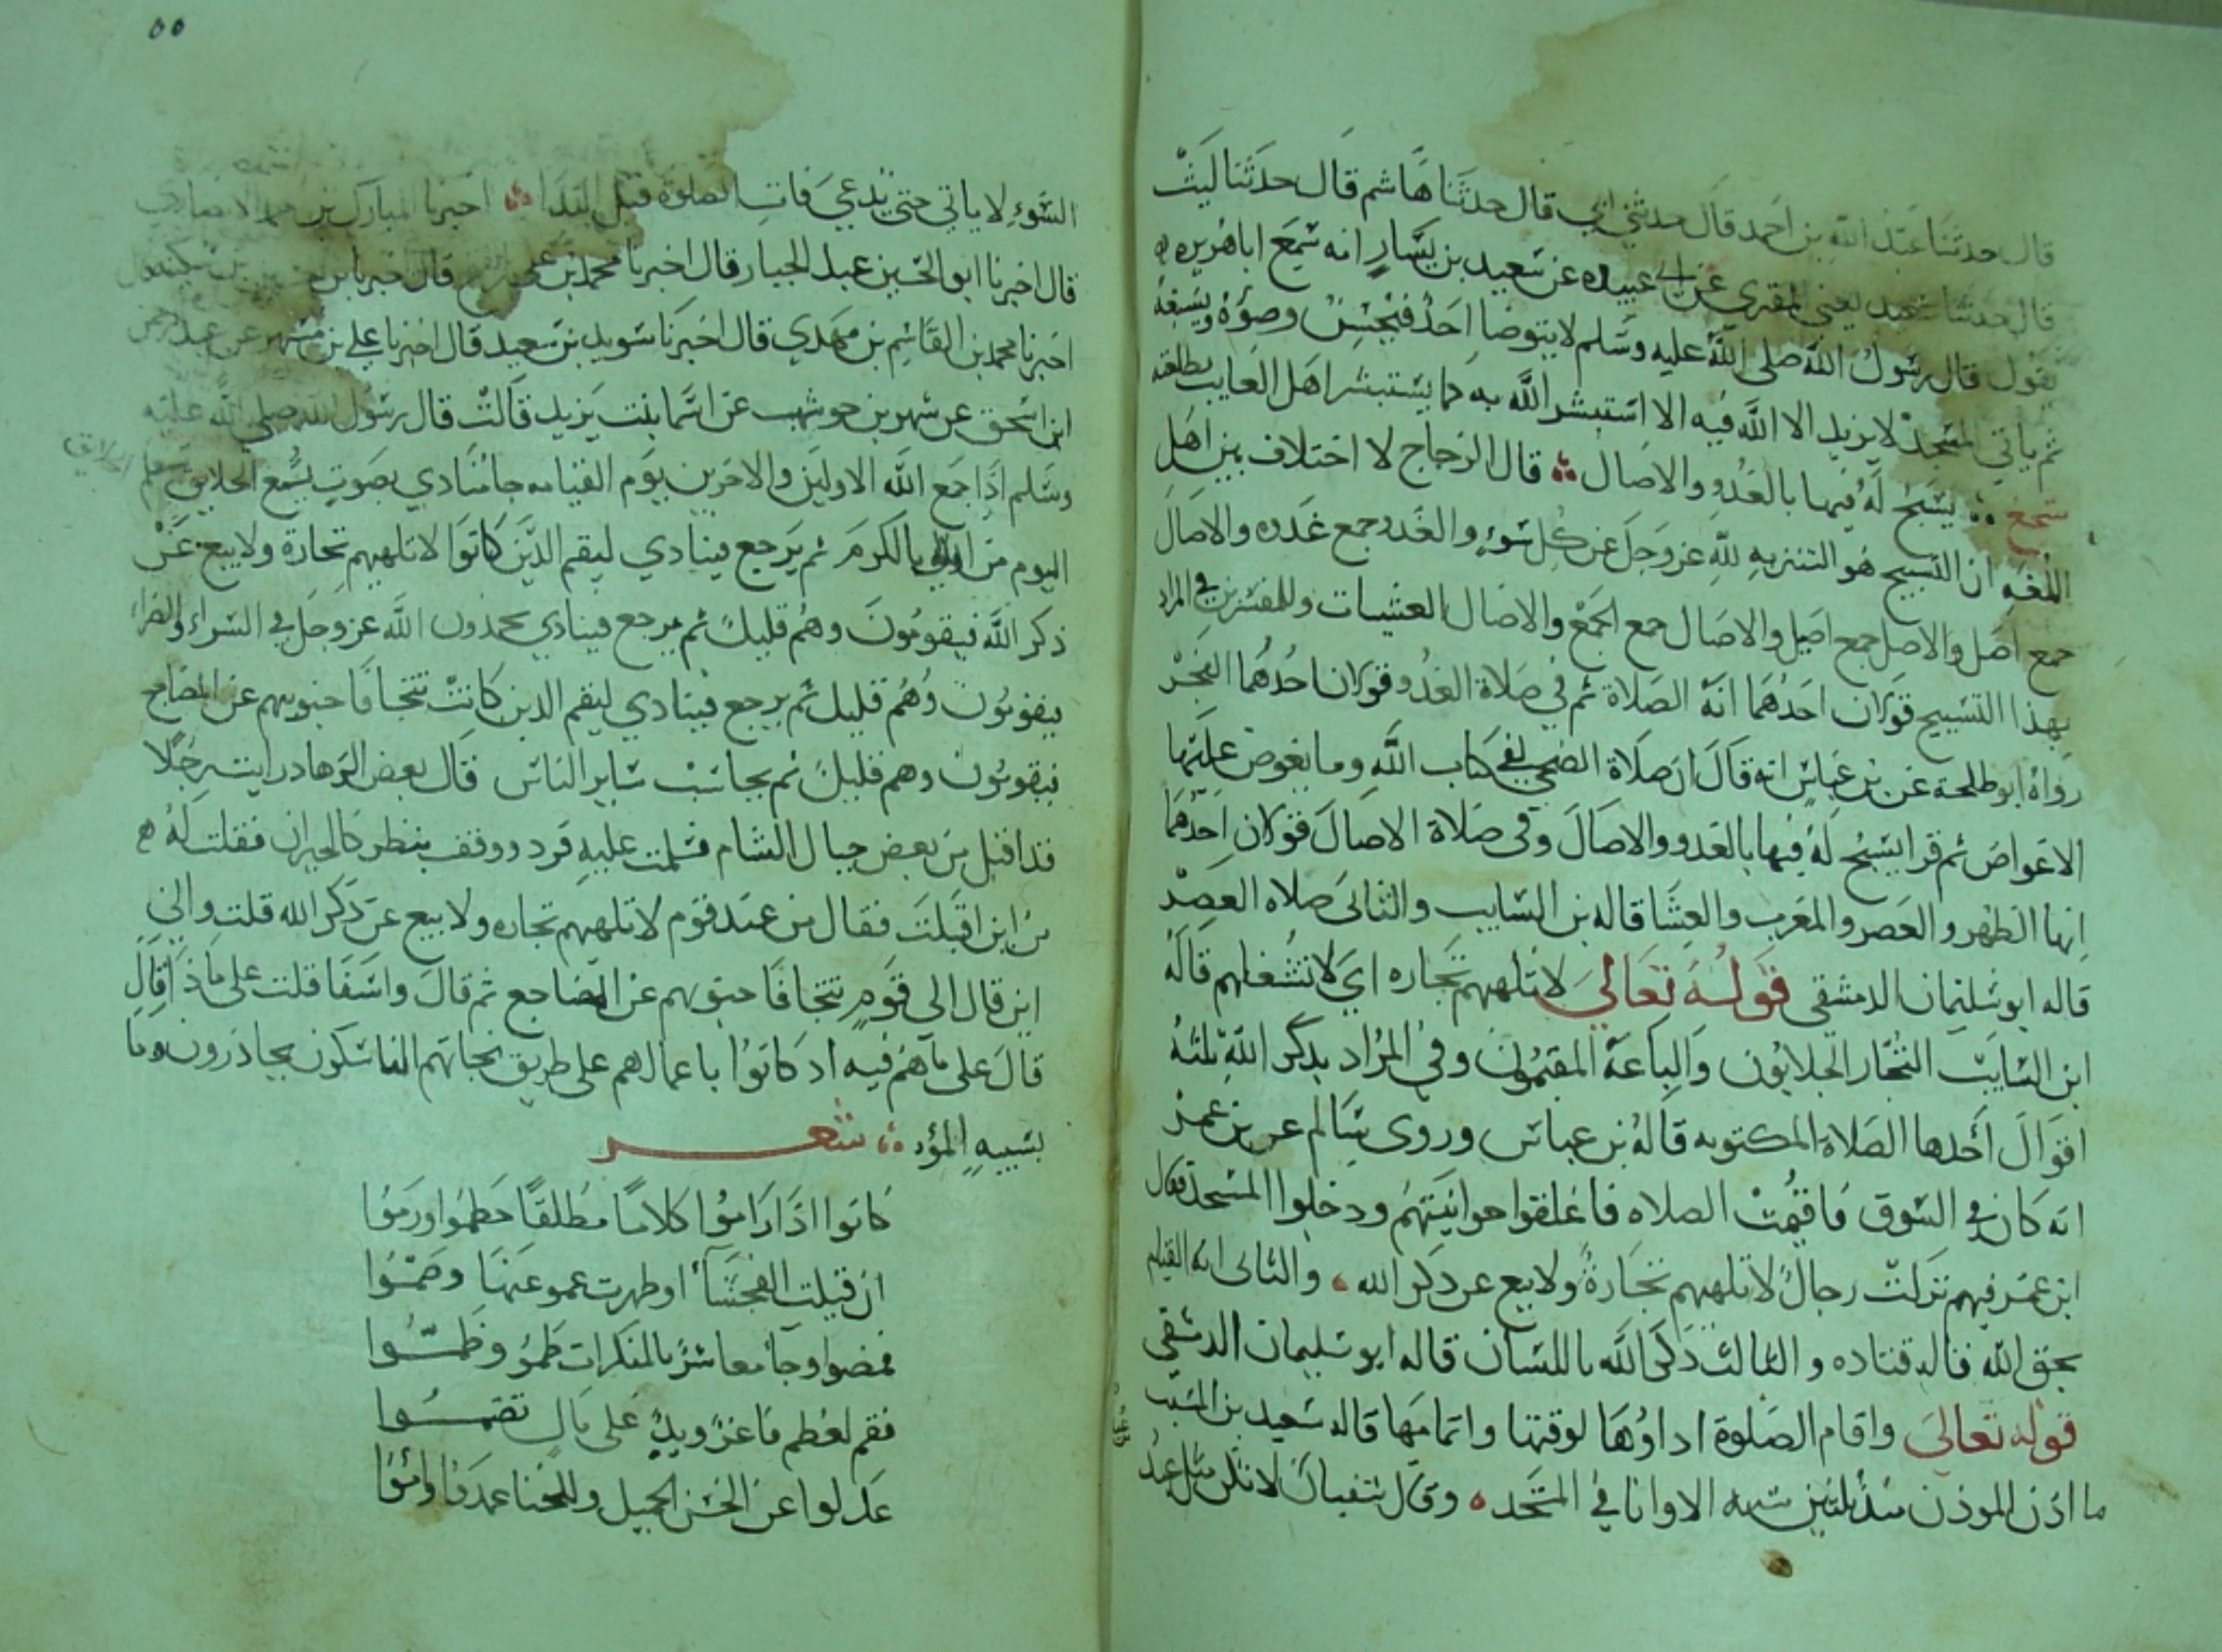 قال حدثنا عبد الله بن احمد قال حدثني ابي قال حدثنا هاشم قال حدثنا ليث
قال حدثنا سعيد يعني المقبري عن ابي عبيده عن سعيد بن يسار انه سمع اباهريره
يقول قال رسول الله صلى الله عليه وسلم لا يتوضا احد فيحسن وضوءه ويسبغه
ثم ياتي المسجد لا يريد الا الله فيه الا استبشر الله به كما يستبشر اهل الغايب بطلعته
سجع يسبح له فيها بالغدو والاصال قال الزجاج لا اختلاف بين اهل
اللغه ان التسبيح هو التنزيه لله عز وجل عن كل سوء والغدو جمع غدوه والاصال
جمع اصل والاصل جمع اصيل والاصال جمع الجمع والاصال العشيات وللمفسرين في المراد
بهذا التسبيح قولان احدهما انه الصلاة ثم في صلاة الغدو قولان احدهما الفجر
رواه ابو طلحة عن بن عباس انه قال ان صلاة الضحى لفي كتاب الله وما يغوص عليها
الا غواص ثم قرا يسبح له فيها بالغدو والاصال وفى صلاة الاصال قولان احدهما
انها الظهر والعصر والمغرب والعشا قاله بن السايب والثانى صلاه العصر
قاله ابو سليمان الدمشقى قوله تعالى لا تلهيهم تجاره اي لا تشغلهم قاله
ابن السايب التجار الجلابون والباعة المقيمون وفي المراد بذكر الله ثلثه
اقوال احدها الصلاة المكتوبه قاله بن عباس وروى سالم عن بن عمر
انه كان في السوق فاقيمت الصلاه فاغلقوا حوانيتهم ودخلوا المسجد فقال
ابن عمر فيهم نزلت رجال لا تلهيهم تجارة ولا بيع عن ذكر الله والثانى انه القيام
بحق الله قاله قتاده والثالث ذكر الله باللسان قاله ابو سليمان الدمشقى
قوله تعالى واقام الصلوة اداوها لوقتها واتمامها قاله سعيد بن المسيب
ما اذن الموذن منذ ثلثين سنه الا وانا في المسجد وقال سفيان لا تكن مثل عبد
٥٥
السوء لا ياتي حتى يدعي فات الصلوة قبل الندا اخبرنا المبارك بن احمد الانصاري
قال اخبرنا ابو الحسين عبد الجبار قال اخبرنا محمد بن علي قال اخبرنا بن
اخبرنا محمد بن القاسم بن مهدي قال اخبرنا سويد بن سعيد قال اخبرنا علي بن مسهر عن عبد الرحمن
ابن اسحق عن شهر بن حوشب عن اسما بنت يزيد قالت قال رسول الله صلي الله عليه
وسلم اذا جمع الله الاولين والاخرين يوم القيامه جا مناد ي بصوت يسمع الخلايق سيعلم
اليوم من اولي بالكرم ثم يرجع فينادي ليقم الذين كانوا لا تلهيهم تجارة ولا بيع عن
ذكر الله فيقومون وهم قليل ثم يرجع فينادي يحمدون الله عز وجل في السراء والضراء
فيقومون وهم قليل ثم يرجع فينادي ليقم الذين كانت تتجافا جنوبهم عن المضاجع
فيقومون وهم قليل ثم يحاسب ساير الناس قال بعض الزهاد رايت رجلا
قد اقبل من بعض جبال الشام فسلمت عليه فرد ووقف ينظر كالحيران فقلت له
من اين اقبلت فقال من عند قوم لا تلهيهم تجاره ولا بيع عن ذكر الله قلت والي
اين قال الي قوم تتجافا جنوبهم عن المضاجع ثم قال واسفا قلت على ماذا قال
قال على ما هم فيه اذ كانوا باعمالهم على طريق نجاتهم الناسكون يحاذرون وما
بسيبه المؤد شعر
كانوا اذا راموا كلاما مطلقا خطموا وزموا
ان قيلت الفحشا او ظهرت عموا عنها وصموا
فمضوا وجا معاشر بالمنكرات طمو وطموا
ففم لطعم فاغر ويد على مال تضموا
عدلوا عن الحسن الجميل وللخنا عمدوا واموا